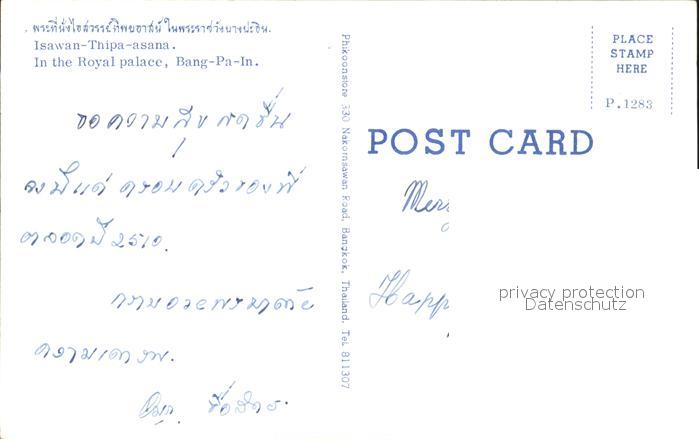 พระที่นั่งไอสวรรย์ทิพยอาสน์ ในพระราชวังบางปะอิน.
Isawan-Thipa-asana.
In the Royal palace, Bang-Pa-In.
ขอความสุข สดชื่น
จงมีแด่ ครอบครัวของพี่
ตลอดปี 2510.
กราบอวยพรมาด้วย
ความเคารพ.
Phikoonstore 330 Nakornsawan Road, Bangkok, Thailand. Tel. 811307
PLACE
STAMP
HERE
P.1283
POST CARD
Mer
Happ
privacy protection
Datenschutz